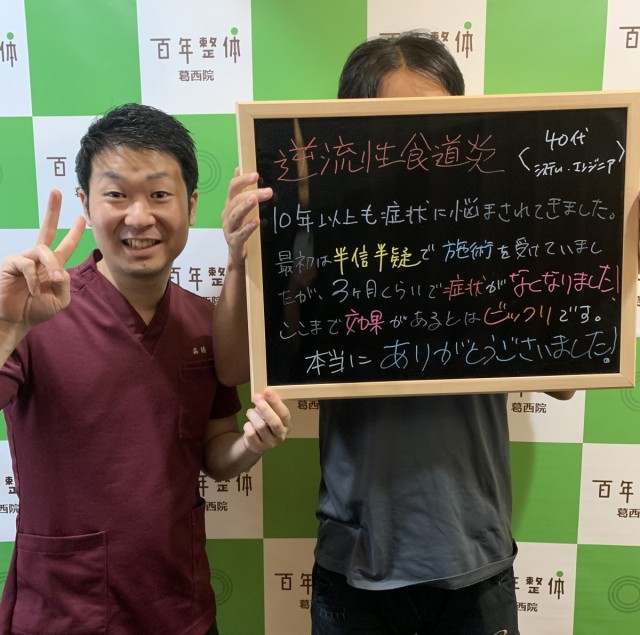 百年整体
葛西院
逆流性食道炎
〈40代
システム・エンジニア〉
10年以上も症状に悩まされてきました。
最初は半信半疑で施術を受けていまし
たが、3ヶ月くらいで症状がなくなりました!
ここまで効果があるとはビックリです。
本当にありがとうございました!
百年整体
葛西院
百年整体
葛西院
百年整体
葛西院